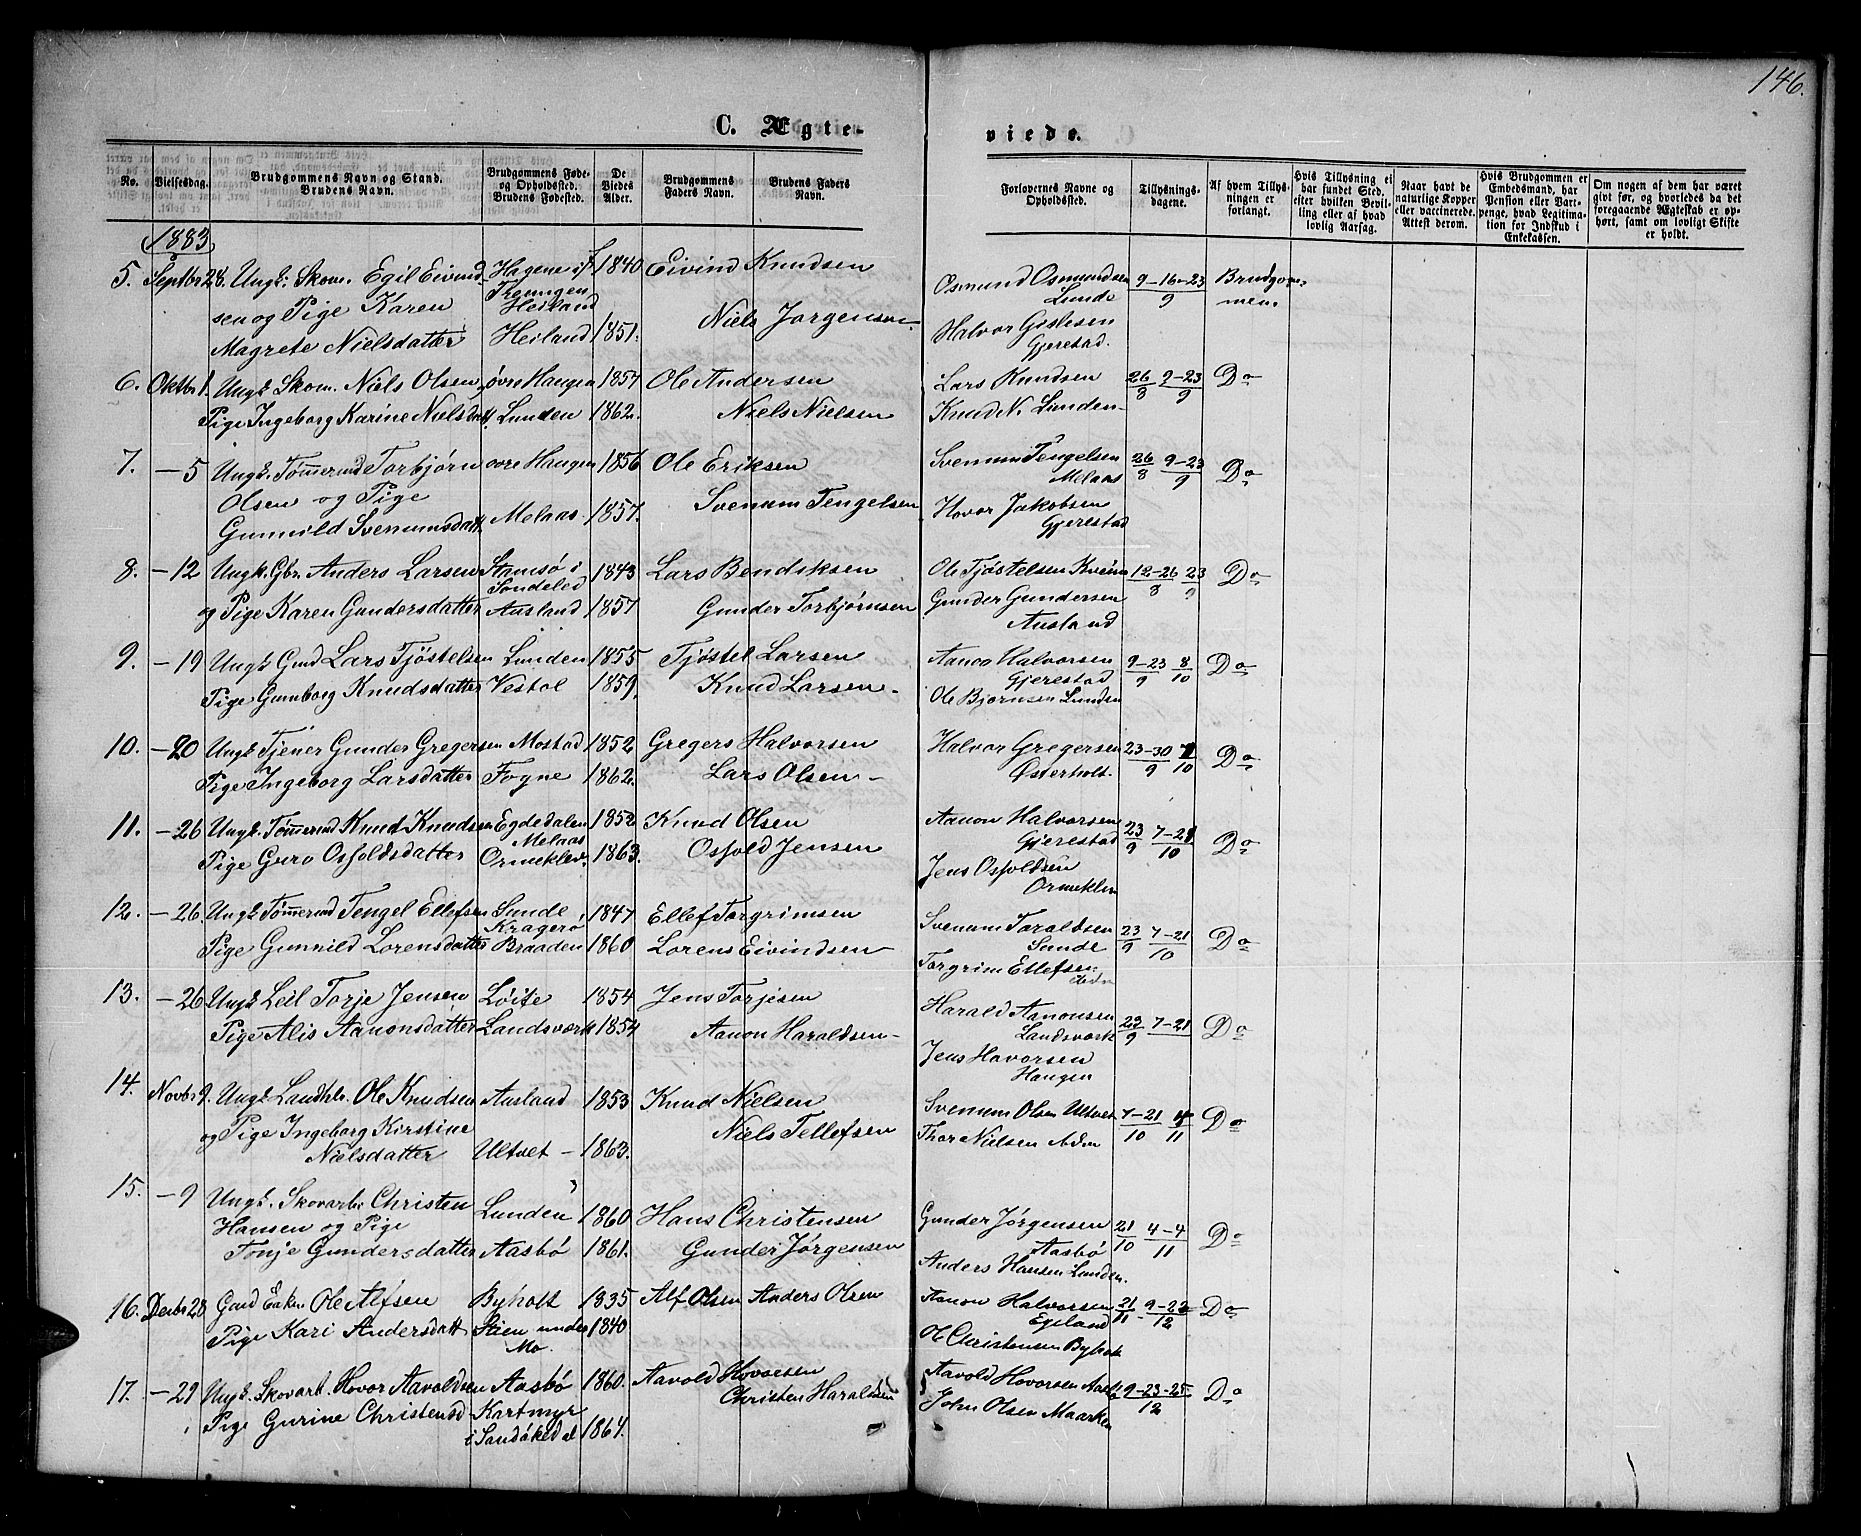 146.
C. Ægte-
viede.
No.
Vielsesdag.
Brudgommens Navn og Stand.
Brudens Navn.
Brudgommens Føde-
og Opholdssted.
Brudens Fødested.
De
Viedes
Alder.
Brudgommens
Faders Navn.
Brudens Faders
Navn.
Forlovernes Navne og
Opholdssted.
Tillysnings-
dagene.
Af hvem Tillys-
ningen er
forlangt.
Hvis Tillysning ei
har fundet Sted,
efter hvilken Bevil-
ling eller af hvad
lovlig Aarsag.
Naar havt de
naturlige Kopper
eller vaccinerede.
Attest derom.
Hvis Brudgommen er
Embedsmand, har
Pension eller Vart-
penge, hvad Legitima-
tion for Indskud i
Enkekassen.
Om nogen af dem har været
gift før, og hvorledes da det
foregaaende Ægteskab er op-
hørt, samt om lovligt Skifte
er holdt.
1883
5. Septbr 28. Ungk. Skom. Egil Eivind- Hagene i 1840 Eivind Knudsen Osmund Osmundsen 9-16-23/9 Brudgom-
sen og Pige Karen Heiland Lunde men.
Magrete Nielsdatter Heiland 1851. Niels Jorgensen Halvor Gislesen
Gjerestad.
6. Oktbr 1. Ungk. Skom. Niels Olsen, øvre Haugen 1857 Ole Andersen Lars Knudsen 26/8 9-23/9 Do
Pige Ingeborg Karine Nielsdatt. Lunden 1862. Niels Nielsen Knud N. Lunden
7. -5 Ungk. Tømmermd Torbjørn øvre Haugen 1856 Ole Eriksen Svenum Tengelsen 26/8 9-23/9 Do
Olsen og Pige Melaas
Gunnild Svenumsdatt. Melaas 1857. Svenum Tengelsen Hovor Jakobsen
Gjerestad
8. -12 Ungk. Gbr. Anders Larsen Stamsø i 1843 Lars Bendiksen Ole Tjøstelsen 12-26/8 23/9 Do
Søndeled
og Pige Karen Gundersdatter Ausland 1857 Gunder Torbjørnsen Gunder Gundersen
Ausland
9. -19 Ungk. Gmd Lars Tjøstelsen Lunden 1855 Tjøstel Larsen Aanon Halvorsen 9-23/9 8/10 Do
Gjerestad
Pige Gunborg Knudsdatter Vestøl 1859. Knud Larsen Ole Bjørnsen Lunden
10. -20 Ungk. Tjener Gunder Gregersen Mostad 1852 Gregers Halvorsen Halvor Gregersen 23-30/9 7/10 Do
Pige Ingeborg Larsdatter Fogne 1862. Lars Olsen Østerholt.
11. -26 Ungk. Tømmermd Knud Knudsen Egdedalen 1852 Knud Olsen Aanon Halvorsen 23/9 7-21/10 Do
Melaas Gjerestad
Pige Guro Osfoldsdatter Ormeklev. 1863. Osfold Jensen Jens Osfoldsen
Ormeklev
12. -26. Ungk. Tømmermd Tengel Ellefsen Sunde 1847 Ellef Torgrimsen Svenum Taraldsen 23/9 7-21/10 Do
Kragerø Sunde
Pige Gunnild Lorensdatter Braaden 1860 Lorens Eivindsen Torgrim Ellefsen
13. -26 Ungk. Leil. Torje Jensen Løite 1854 Jens Torjesen Harald Aanonsen 23/9 7-21 Do
Landsværk
Pige Alis Aanonsdatter Landsværk 1854 Aanon Haraldsen Jens Havorsen
Haugen
14. Novbr 9. Ungk. Landhlr. Ole Knudsen Ausland 1853 Knud Nielsen Svenum Olsen Ultvet 7-21/10 4/11 Do
og Pige Ingeborg Kirstine Niels Tellefsen Thor Nielsen
Nielsdatter Ultvet 1863.
15. -9 Ungk. Skovarb. Christen Lunden 1860 Hans Christensen Gunder Jørgensen 21/10 4-4/11 Do
Hansen og Pige Aasbø
Tonje Gundersdatter Aasbø 1861. Gunder Jørgensen Anders Hansen Lunden.
16. Decbr 28 Gmd Enkem. Ole Alfsen Byholt 1835 Alf Olsen Anders Olsen Aanon Halvorsen 21/11 9-23/12 Do
Egeland
Pige Kari Andersdatt. Stien under 1840 Ol Christensen Byholt
Mo.
17. -29 Ungk. Skovarb. Hovor Aavoldsen Aasbø 1860. Aavold Hovorsen Aavold Hovorsen Aasbø 9-23-25/12 Do
Pige Gurine Christensd Kartmyr Christen Haraldsen John Olsen Maarken
i Sandøkedal 1864.